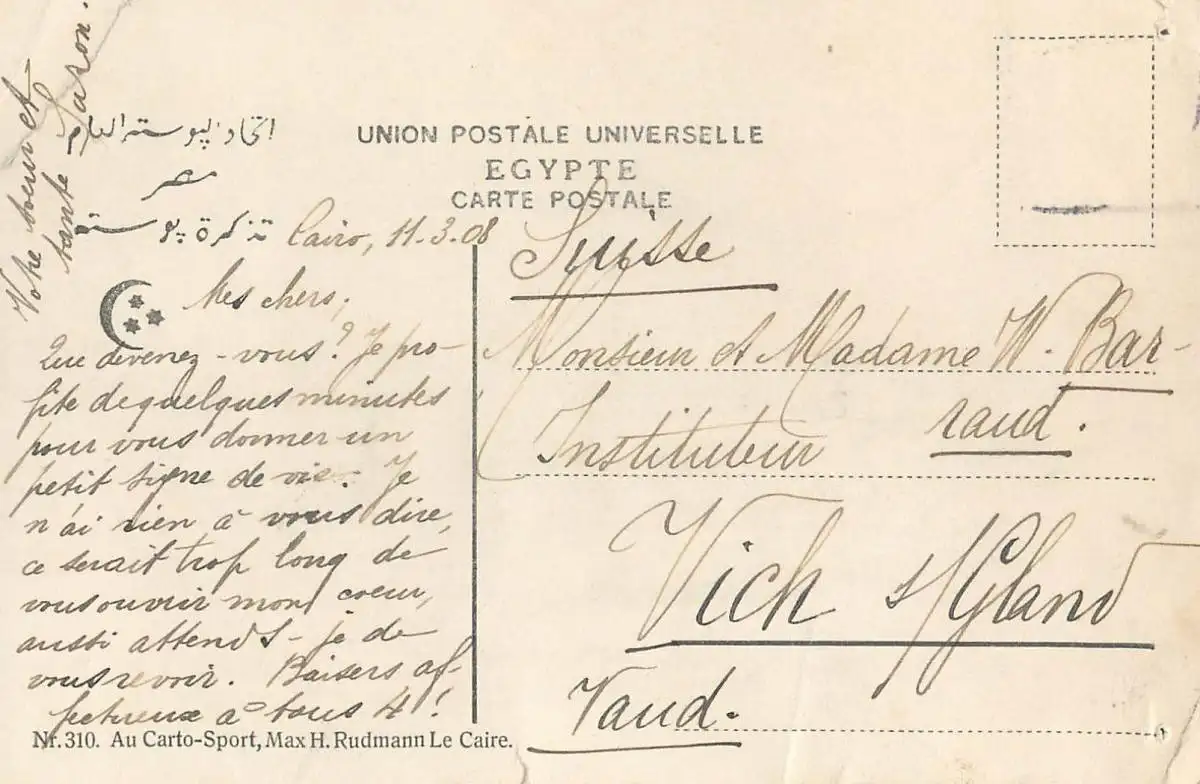 اتحاد البوسته العام
مصر
تذكرة بوسته
UNION POSTALE UNIVERSELLE
EGYPTE
CARTE POSTALE
Cairo, 11-3-08
Mes chers,
Que devenez-vous? Je pro-
fite de quelques minutes
pour vous donner un
petit signe de vie. Je
n'ai rien à vous dire,
ce serait trop long de
vous ouvrir mon coeur,
aussi attends-je de
vous revoir. Baisers af-
fectueux à tous 4!
Votre soeur et
tante
Suisse
Monsieur et Madame W. Bar-
raud.
Instituteur
Vich s/Gland
Vaud.
Nr. 310. Au Carto-Sport, Max H. Rudmann Le Caire.